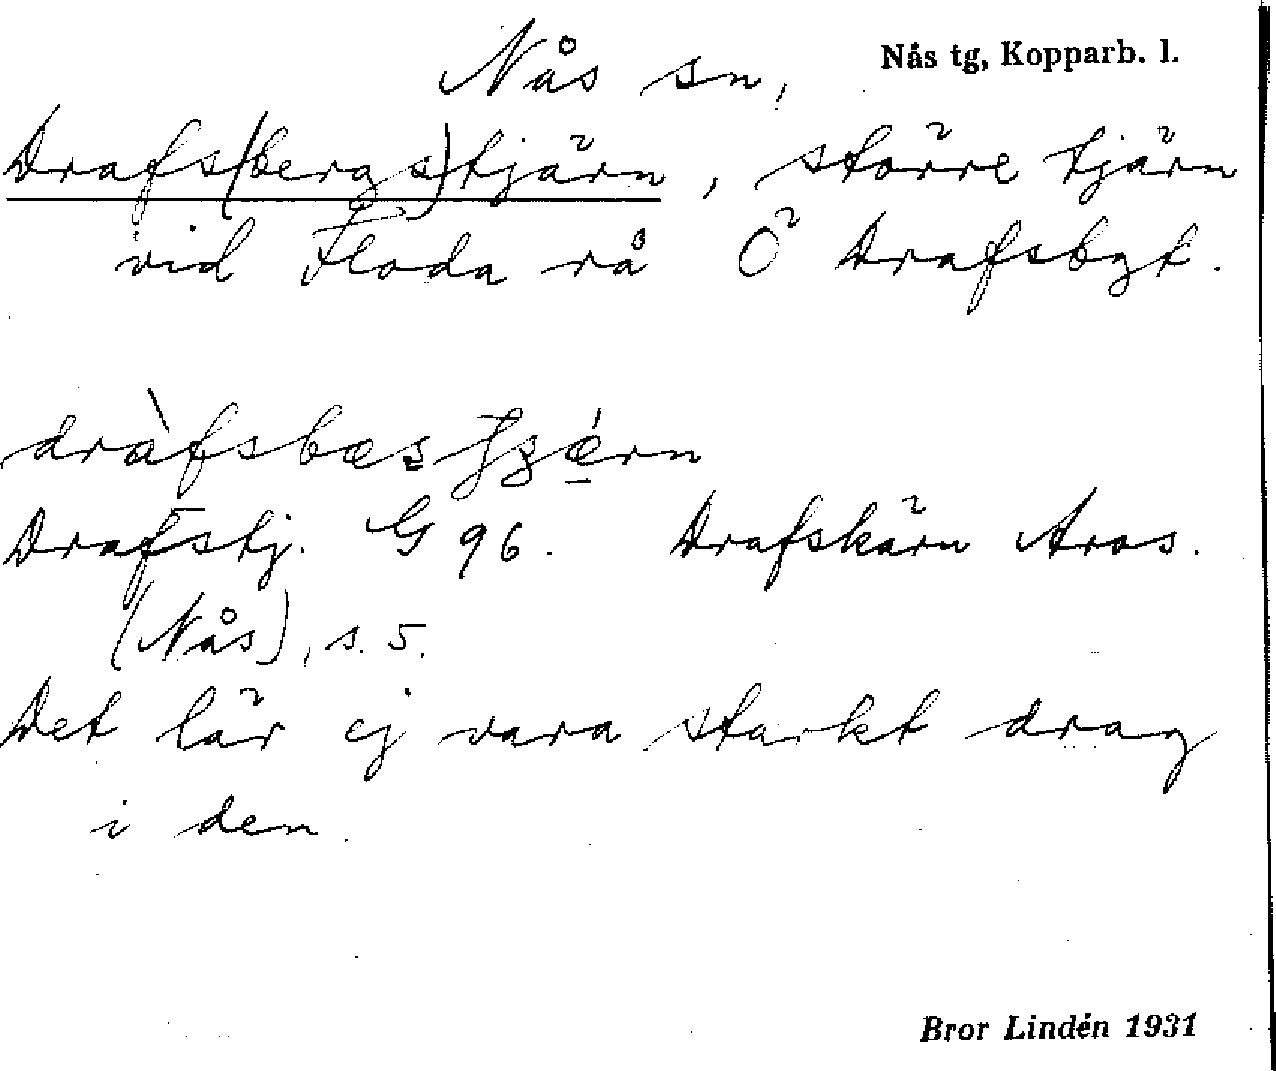 Nås sn,
Nås tg, Kopparb. l.
Drafs(bergs)tjärn, större tjärn
vid Floda rå Ö Drafsbgt.
Drafstj. G 96. Drafskärn Aros.
(Nås), s. 5.
Det lär ej vara starkt drag
i den.
Bror Lindén 1931